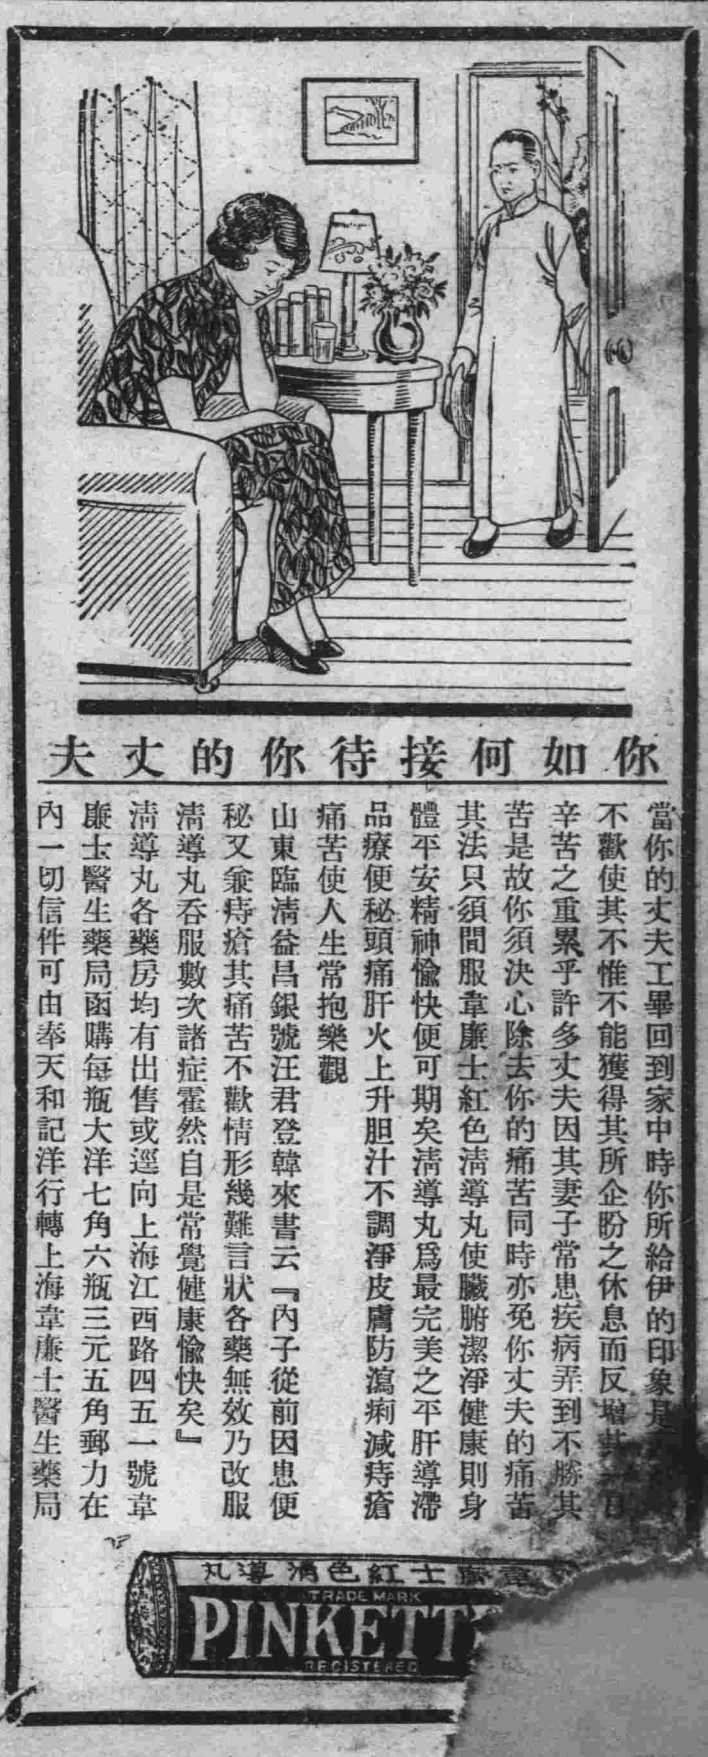 你如何接待你的丈夫
當你的丈夫工畢回到家中時你所給伊的印象是
不歡使其不惟不能獲得其所企盼之休息而反增其一日
辛苦之重累乎許多丈夫因其妻子常患疾病弄到不勝其
苦是故你須決心除去你的痛苦同時亦免你丈夫的痛苦
其法只須間服韋廉士紅色淸導丸使臟腑潔淨健康則身
體平安精神愉快便可期矣淸導丸爲最完美之平肝導滯
品療便秘頭痛肝火上升胆汁不調淨皮膚防瀉痢減痔瘡
痛苦使人生常抱樂觀
山東臨淸益昌銀號汪君登韓來書云『內子從前因患便
秘又兼痔瘡其痛苦不歡情形幾難言狀各藥無效乃改服
淸導丸吞服數次諸症霍然自是常覺健康愉快矣』
淸導丸各藥房均有出售或逕向上海江西路四五一號韋
廉士醫生藥局函購每瓶大洋七角六瓶三元五角郵力在
內一切信件可由奉天和記洋行轉上海韋廉士醫生藥局
韋廉士紅色淸導丸
TRADE MARK
PINKETT
REGISTERED